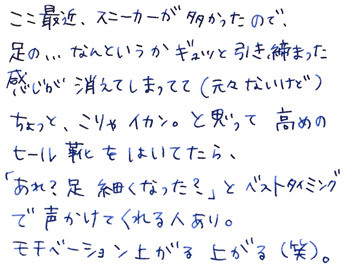 ここ最近、スニーカーが多かったので、
足の…なんというかギュッと引き締まった
感じが消えてしまってて(元々ないけど)
ちょっと、こりゃイカン。と思って高めの
ヒール靴をはいてたら、
「あれ?足細くなった?」とベストタイミング
で声かけてくれる人あり。
モチベーション上がる上がる(笑)。